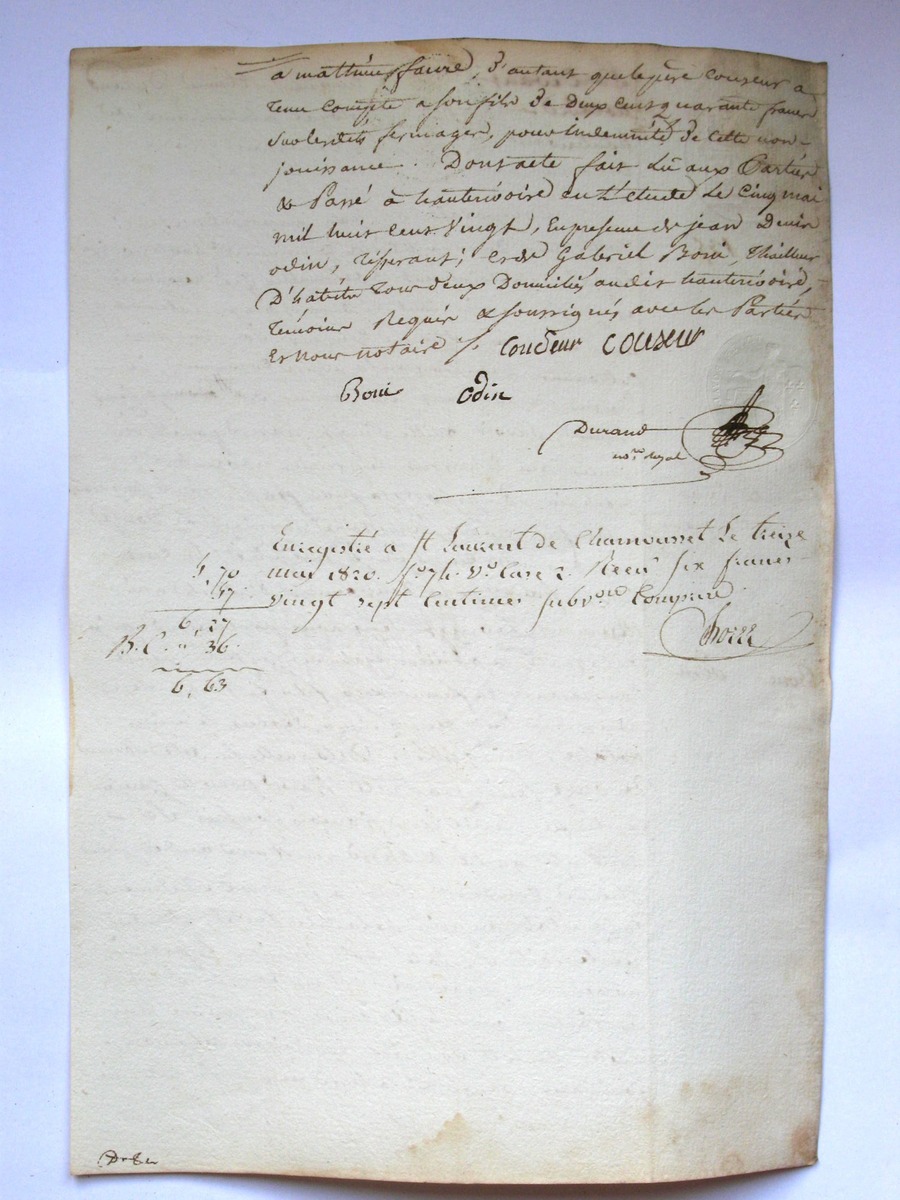 a mathieu faure, d'autant que le père Couzeur a
tenu Compte a son fils de Deux cens quarante francs
Sur lesdits fermages, pour indemnité de cette non-
jouissance. Dont acte fait Lu aux Parties
& Passé à hauterivoire en L'étude Le Cinq mai
mil huit cent Vingt, En presence de jean Denis
odin, ; et de Gabriel Boni, thailleur
D'habits tous deux Domiciliés audit hauterivoire,
temoins Requis & soussignés avec les Parties
Et nous notaire Couzeur Couzeur
Boni Odin
Durand
no.re royal
Enregistré a St Laurent de Chamousset Le treize
mai 1820. fo 74. Vo Case 2. Reçu six francs
vingt sept Centimes subv.on Comprise
5,70
57
6,27
B. C. " 36
6,63